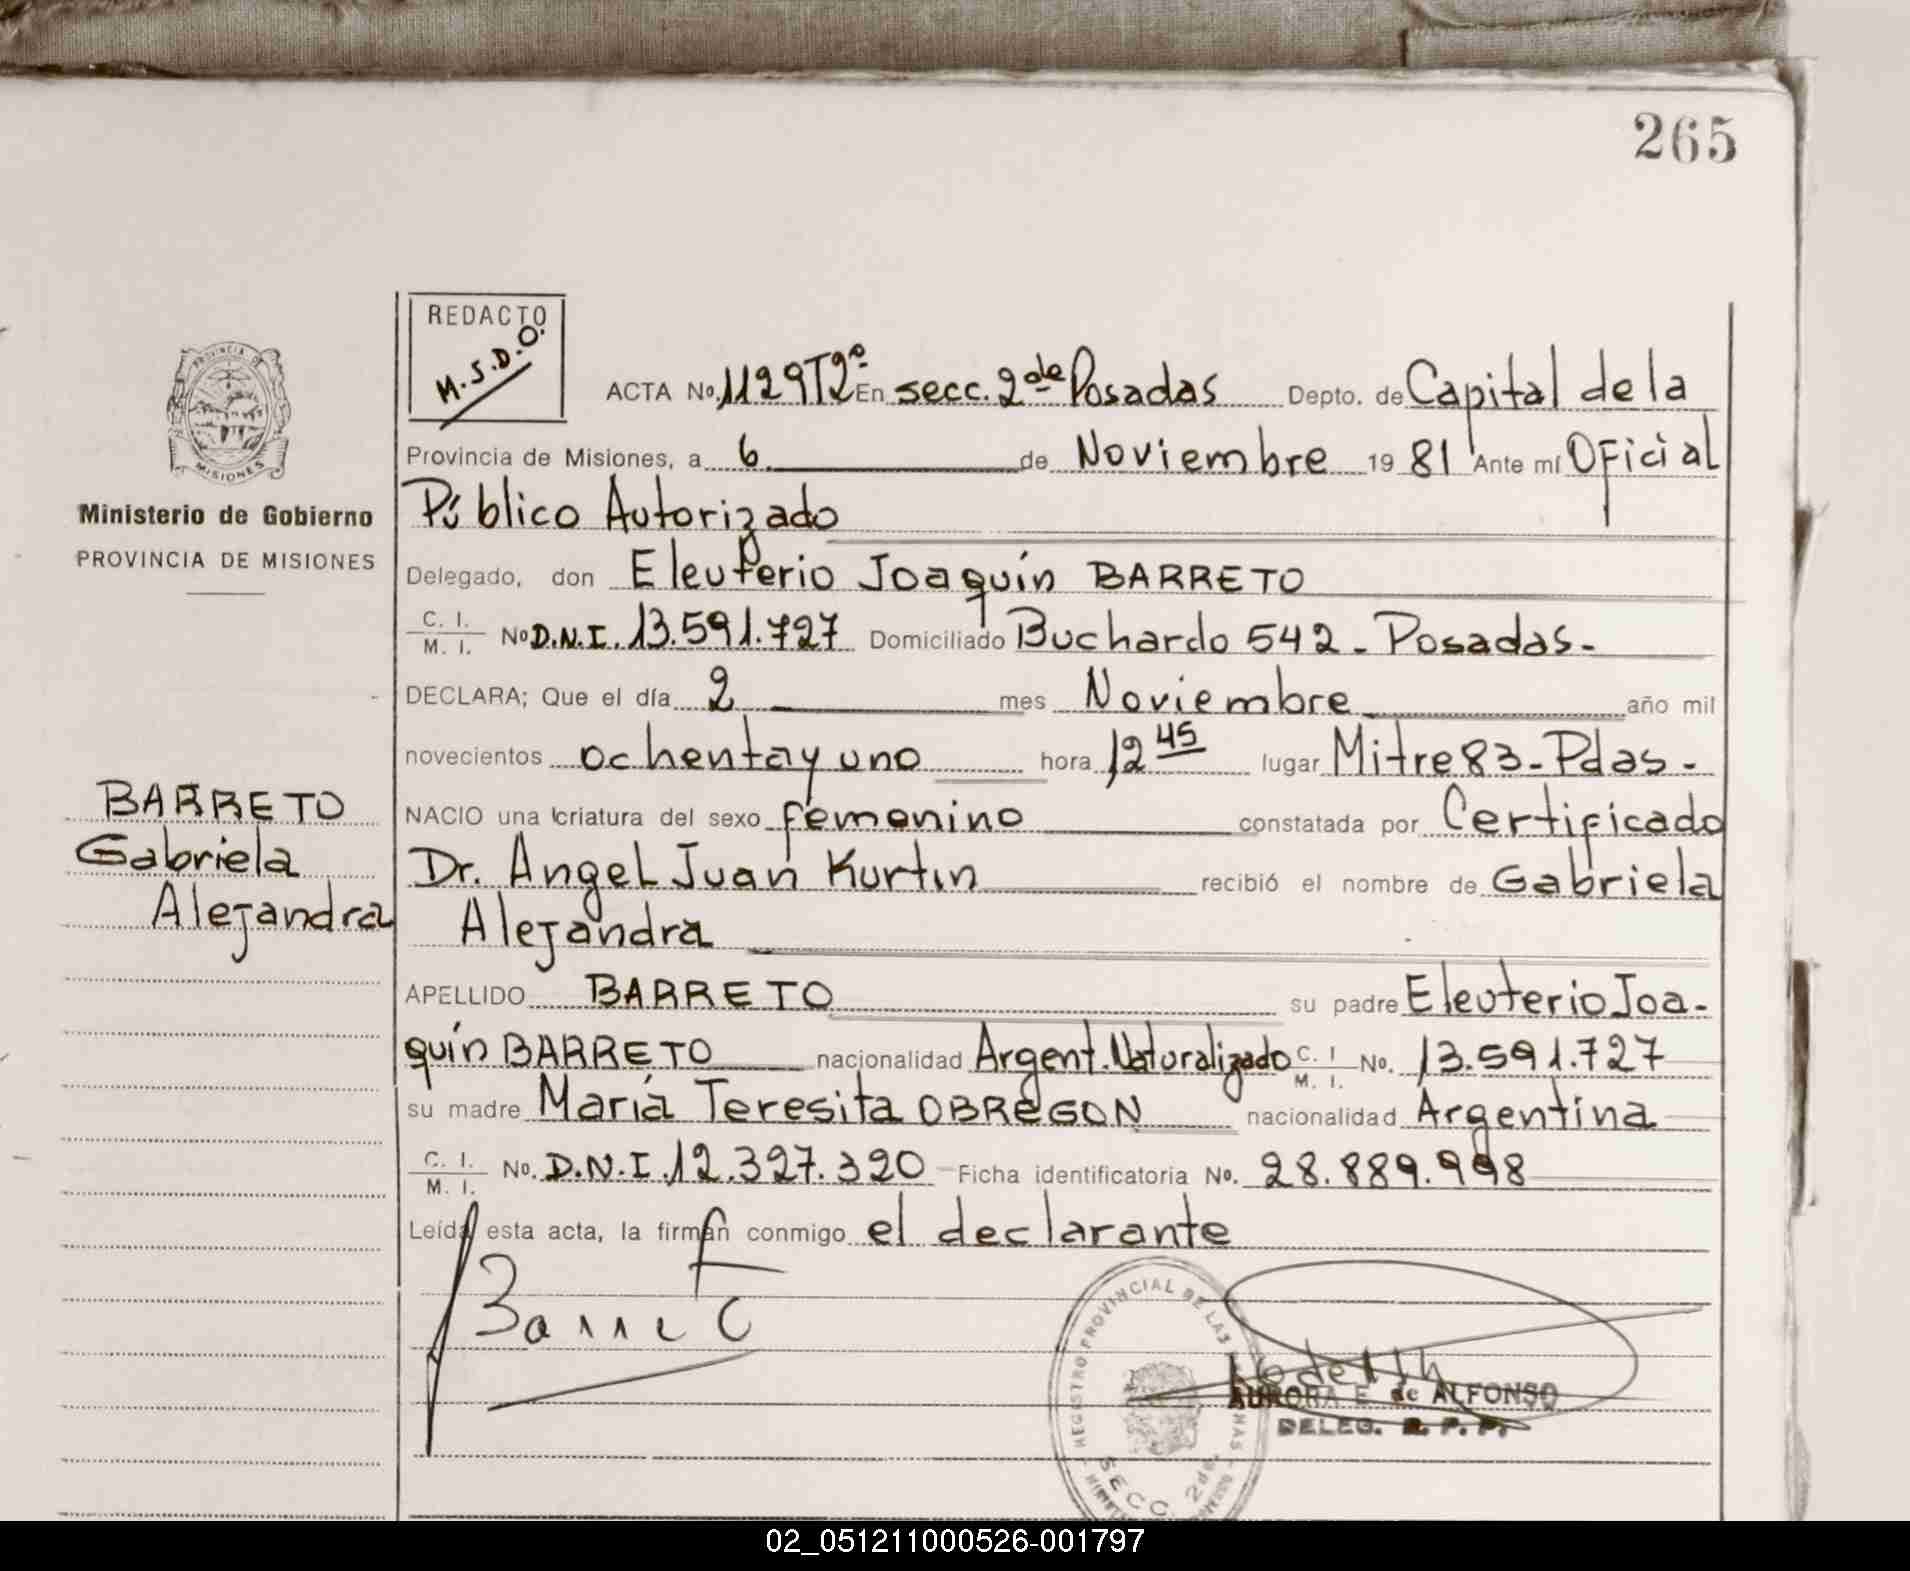 265
REDACTO
M.S.D.O.
PROVINCIA DE
MISIONES
Ministerio de Gobierno
PROVINCIA DE MISIONES
ACTA No. 1129T2º En secc. 2da de Posadas Depto. de Capital de la
Provincia de Misiones, a 6 de Noviembre 1981 Ante mí Oficial
Público Autorizado
Delegado, don Eleuterio Joaquín BARRETO
C. I.
M. I. No D.N.I. 13.591.727 Domiciliado Buchardo 542 - Posadas -
DECLARA; Que el día 2 mes Noviembre año mil
novecientos ochenta y uno hora 12 45 lugar Mitre 83 - Pdas -
BARRETO
Gabriela
Alejandra
NACIO una criatura del sexo femenino constatada por Certificado
Dr. Angel Juan Kurtin recibió el nombre de Gabriela
Alejandra
APELLIDO BARRETO su padre Eleuterio Joa-
quín BARRETO nacionalidad Argent. Naturalizado C. I. M. I. No. 13.591.727
su madre María Teresita OBREGON nacionalidad Argentina
C. I.
M. I. No. D.N.I. 12.327.320 Ficha identificatoria No. 28.889.998
Leída esta acta, la firman conmigo el declarante
Barreto
REGISTRO PROVINCIAL DE LAS PERSONAS
SECC. 2da.
AURORA E. de ALFONSO
DELEG. R. P. P.
02_051211000526-001797